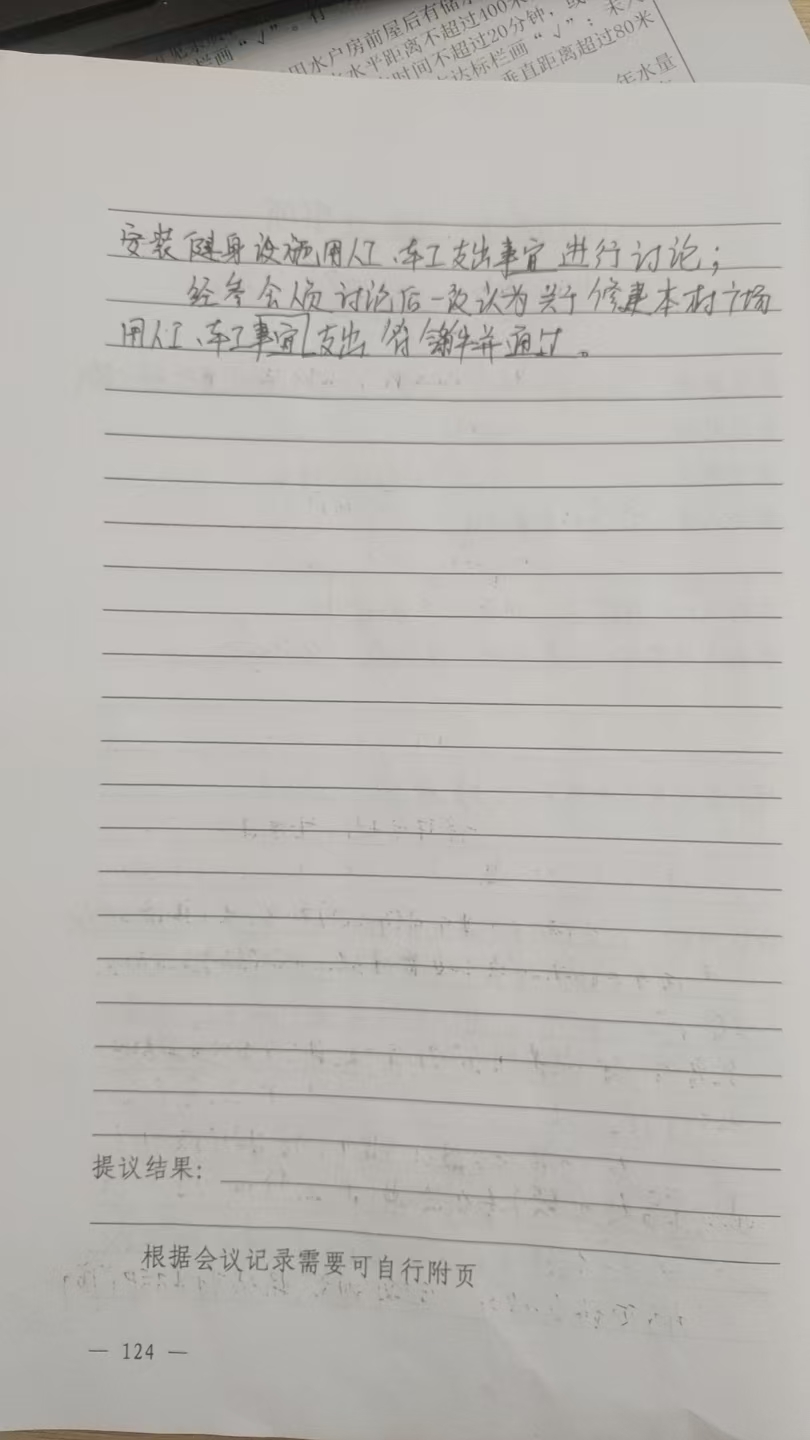 栏画“√”。有
用水户房前屋后有储水
水平距离不超过100米
时间不超过20分钟，或
达标栏画“√”；未入
垂直距离超过80米
年水量
安装健身设施用人工、车工支出事宜进行讨论；
经参会人员讨论后一致认为关于修建本村广场
用人工、车工事宜支出符合条件并通过。
提议结果：
根据会议记录需要可自行附页
— 124 —